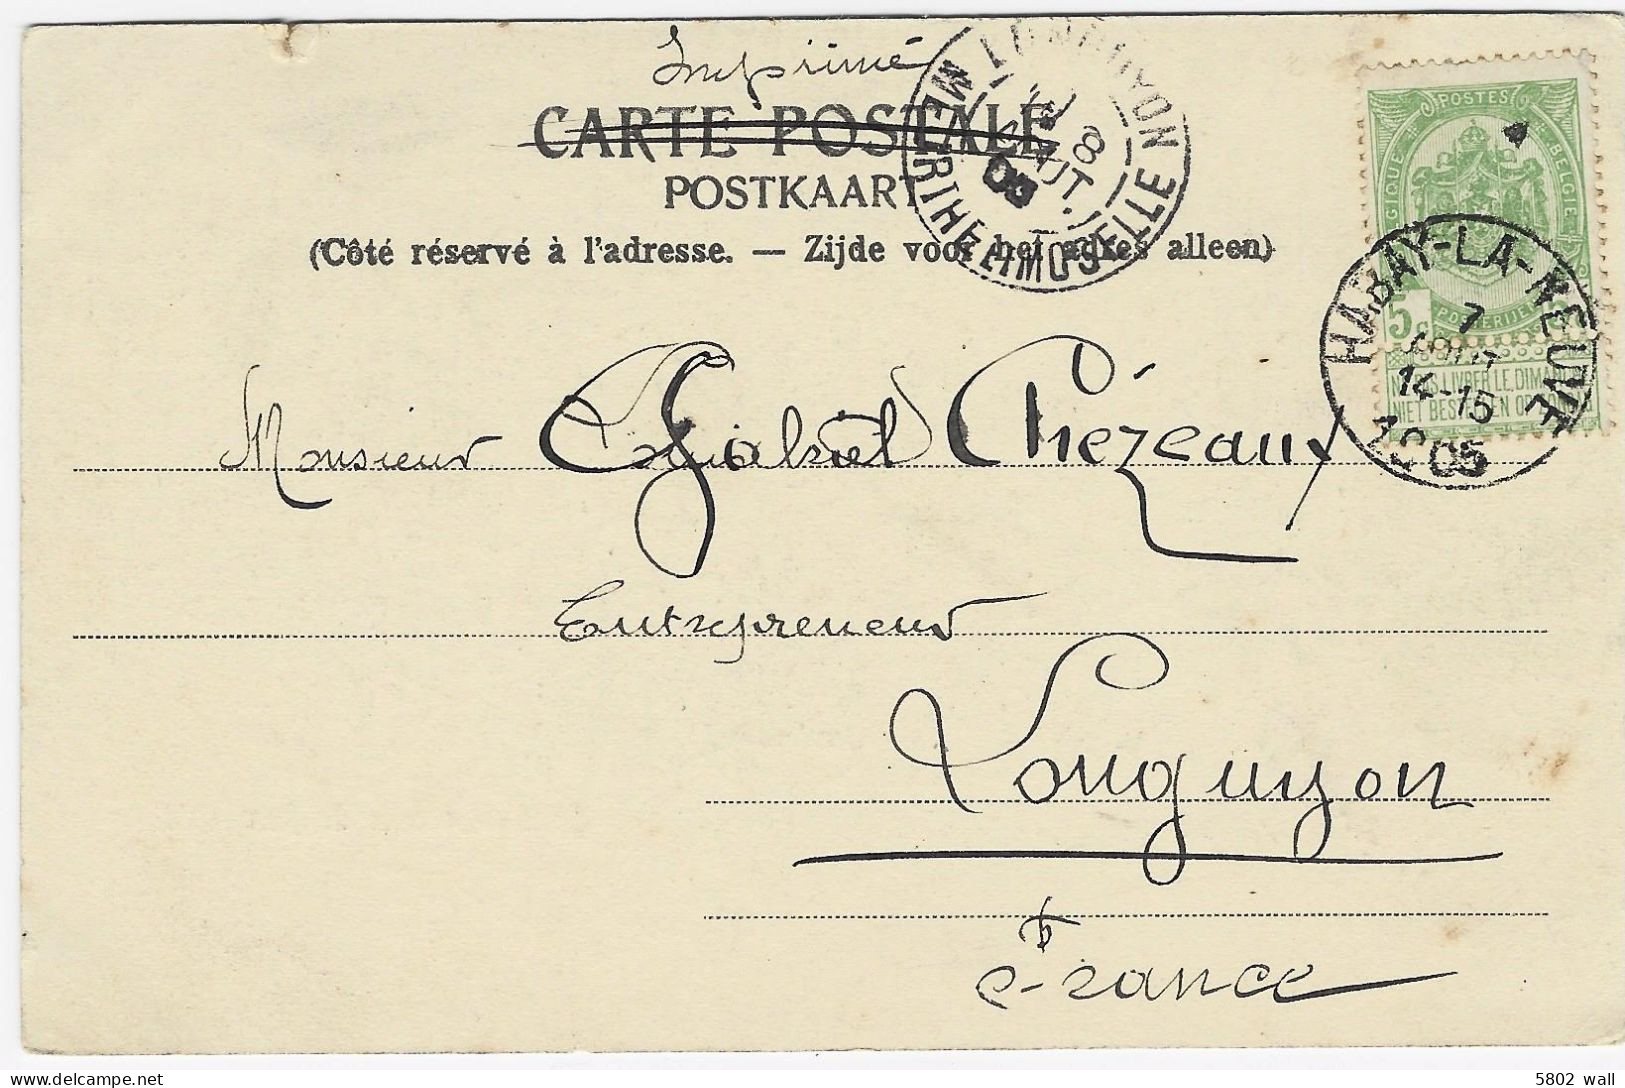 Imprimé
CARTE POSTALE
POSTKAART
(Côté réservé à l'adresse. — Zijde voor het adres alleen)
LONGUYON
8
AOUT
05
MEURTHE ET MOSELLE
POSTES
BELGIQUE BELGIE
5c
POSTERIJEN
NE PAS LIVRER LE DIMANCHE
NIET BESTELLEN OP ZONDAG
HABAY-LA-NEUVE
7
AOUT
14-15
1905
Monsieur Gabriel Chézeaux
Entrepreneur
Longuyon
France
5802 wall